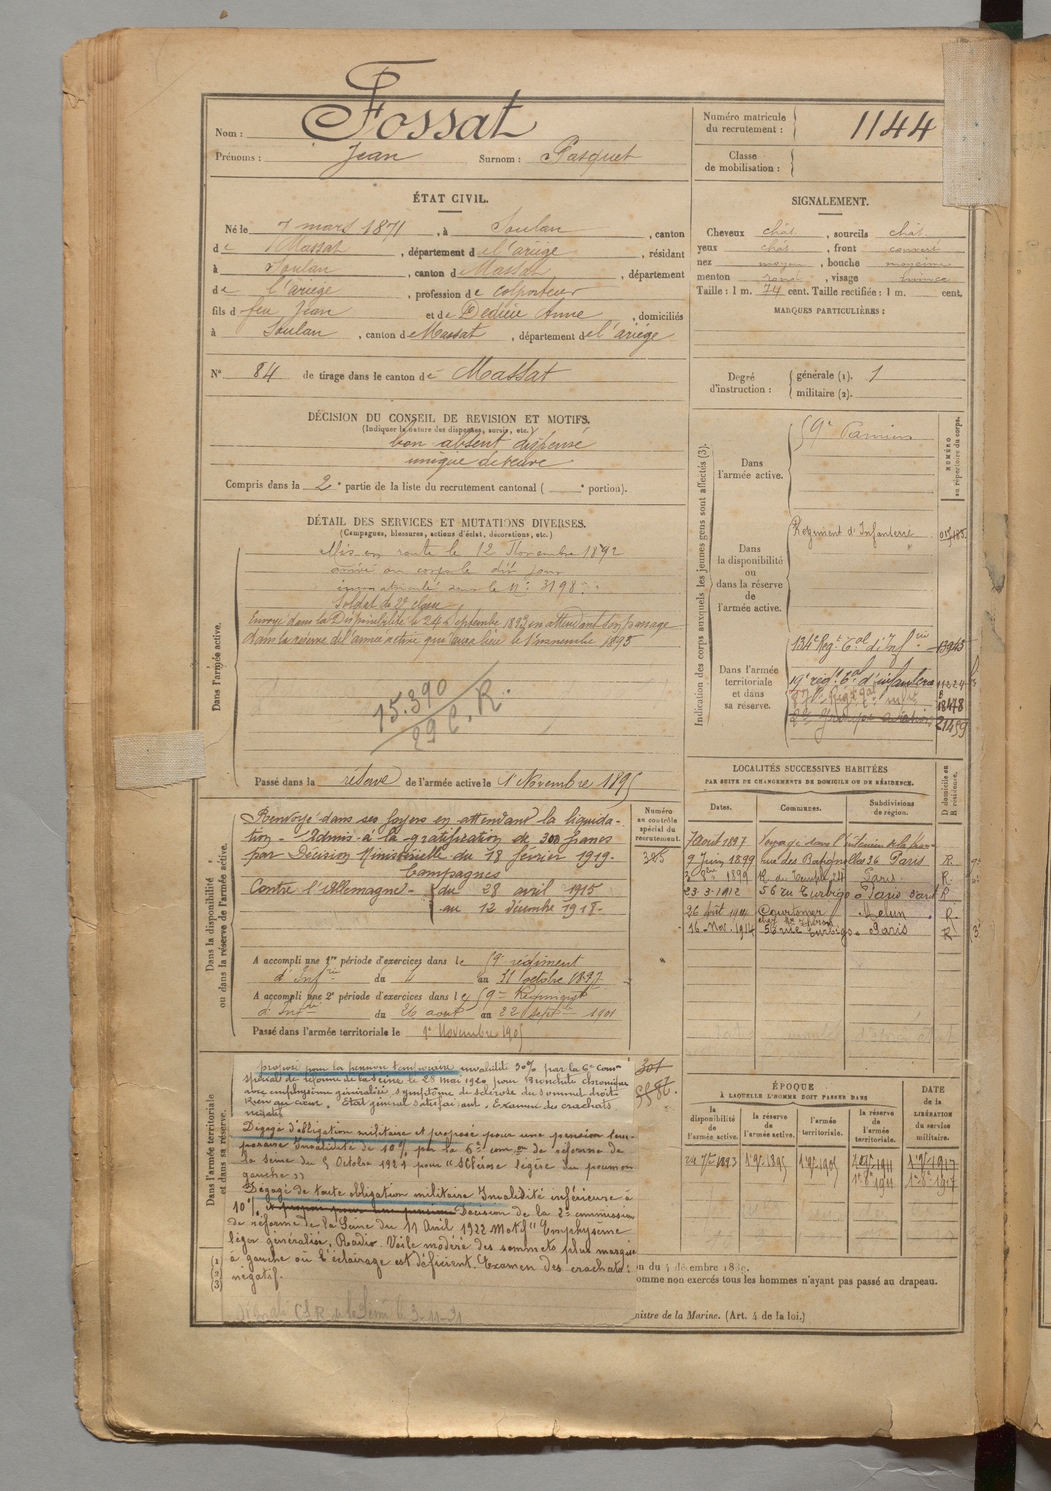 Nom : Fossat
Prénoms : Jean Surnom : Pasquet
Numéro matricule du recrutement : 1144
Classe de mobilisation :
ÉTAT CIVIL.
Né le 7 mars 1871, à Soulan, canton
de Massat, département de l'ariège, résidant
à Soulan, canton de Massat, département
de l'ariège, profession de colporteur
fils de feu Jean et de Dedieu Anne, domiciliés
à Soulan, canton de Massat, département de l'ariège
N° 84 de tirage dans le canton de Massat
SIGNALEMENT.
Cheveux chât., sourcils chât.
yeux chât., front couvert
nez moyen, bouche moyenne
menton rond, visage
Taille : 1 m. 74 cent. Taille rectifiée : 1 m. cent.
MARQUES PARTICULIÈRES :
Degré d'instruction : générale (1). 1
militaire (2).
DÉCISION DU CONSEIL DE REVISION ET MOTIFS.
(Indiquer la nature des dispenses, sursis, etc.)
bon absent dispensé
unique de veuve
Compris dans la 2e partie de la liste du recrutement cantonal ( e portion).
DÉTAIL DES SERVICES ET MUTATIONS DIVERSES.
(Campagnes, blessures, actions d'éclat, décorations, etc.)
Dans l'armée active.
Mis en route le 12 Novembre 1892
arrivé au corps le dit jour
immatriculé sous le n° 3198
Soldat de 2e classe
Envoyé dans la Disponibilité le 24 septembre 1893 en attendant son passage
dans la réserve de l'armée active qui aura lieu le 1 novembre 1895
15.390
29 C. R.
Passé dans la réserve de l'armée active le 1 Novembre 1895
Indication des corps auxquels les jeunes gens sont affectés (3).
NUMÉRO au répertoire du corps.
Dans l'armée active.
59e Pamiers
Dans la disponibilité ou dans la réserve de l'armée active.
Régiment d'Infanterie
Dans l'armée territoriale et dans sa réserve.
134e Régt Tal d'Infrie 13945
19e régt Tal d'infanterie 11224
18478
21459
Dans la disponibilité ou dans la réserve de l'armée active.
Numéro au contrôle spécial du recrutement.
Renvoyé dans ses foyers en attendant la liquida-
tion - Admis à la gratification de 300 francs
par Décision Ministérielle du 18 février 1919-
Campagnes
Contre l'Allemagne - du 28 avril 1915
au 12 décembre 1918-
A accompli une 1re période d'exercices dans le 59e régiment
d'Infrie du 4 au 31 octobre 1897
A accompli une 2e période d'exercices dans le 59e Régiment
d'Infrie du 26 aout au 22 septbre 1901
Passé dans l'armée territoriale le 1e Novembre 1905
LOCALITÉS SUCCESSIVES HABITÉES
PAR SUITE DE CHANGEMENTS DE DOMICILE OU DE RÉSIDENCE.
Dates. Communes. Subdivisions de région. D domicile ou R résidence.
7 avril 1897 Voyage dans l'intérieur de la
9 Juin 1899 rue des Batignolles 36 Paris R
1899 R. du Temple 24 Paris R.
23.3.1912 56 ru Turbigo Paris R
26 Août 1914 Courtomer Melun R
16 Nov. 1914 56 rue Turbigo Paris R
Dans l'armée territoriale et dans sa réserve.
proposé pour la pension temporaire invalidité 30% par la 6e Comon
spéciale de réforme de la Seine le 28 mai 1920 pour Bronchite chronique
avec emphysème généralisé. symptôme de sclérose du sommet droit.
Rien au cœur. Etat général satisfaisant. Examen des crachats
négatif
Dégagé d'obligation militaire et proposé pour une pension tem-
poraire Invalidité de 10% par la 6e comon de réforme de
la Seine du 5 Octobre 1921 pour "Sclérose légère du poumon
gauche"
Dégagé de toute obligation militaire Invalidité inférieure à
10% et proposé pour une pension Décision de la 2e commission
de réforme de la Seine du 11 Avril 1922 Motif "Emphysème
léger généralisé. Radio. Voile modéré des sommets plus marqué
à gauche où l'éclairage est déficient. Examen des crachats :
négatif.
ÉPOQUE
À LAQUELLE L'HOMME DOIT PASSER DANS
la disponibilité de l'armée active. la réserve de l'armée active. l'armée territoriale. la réserve de l'armée territoriale.
DATE de la LIBÉRATION du service militaire.
24 7bre 1893 1e 9bre 1895 1e 9bre 1905 1911 1917
on du 4 décembre 1889.
omme non exercés tous les hommes n'ayant pas passé au drapeau.
nistre de la Marine. (Art. 4 de la loi.)